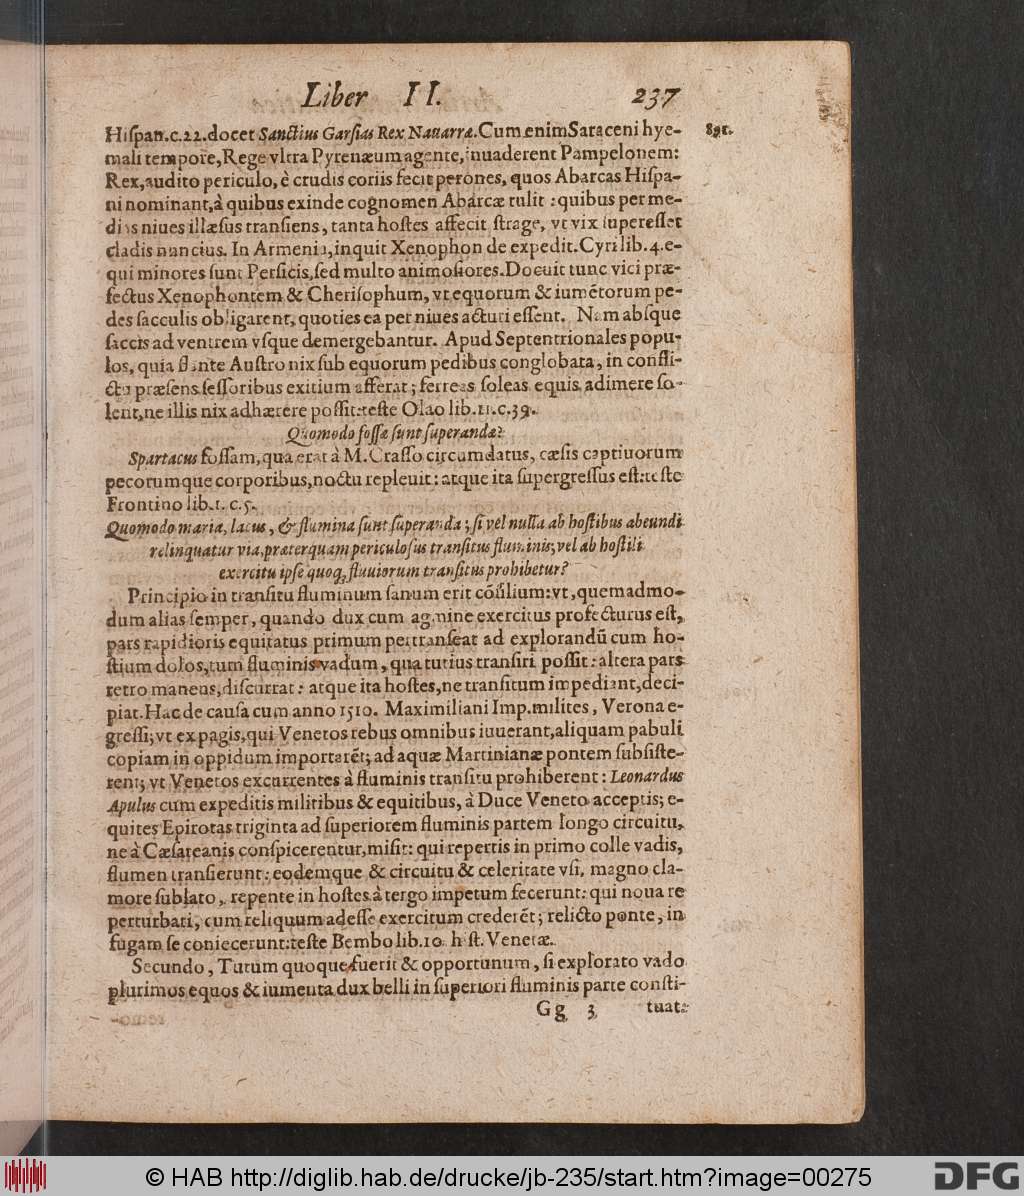 Liber II. 237
Hiſpan.c.22.docet Sanctius Garſias Rex Nauarræ.Cum enim Saraceni hye- 891.
mali tempore,Rege vltra Pyrenæum agente,inuaderent Pampelonem:
Rex,audito periculo, è crudis coriis fecit perones, quos Abarcas Hiſpa-
ni nominant,à quibus exinde cognomen Abarcæ tulit : quibus per me-
dias niues illæſus tranſiens, tanta hoſtes affecit ſtrage, vt vix ſupereſſet
cladis nuncius. In Armenia,inquit Xenophon de expedit.Cyri lib.4.e-
qui minores ſunt Perſicis,ſed multo animoſiores.Docuit tunc vici præ-
fectus Xenophontem & Cheriſophum, vt equorum & iumẽtorum pe-
des ſacculis obligarent, quoties ea per niues acturi eſſent. Nam abſque
ſaccis ad ventrem vſque demergebantur. Apud Septentrionales popu-
los, quia flante Auſtro nix ſub equorum pedibus conglobata, in confli-
ctu præſens ſeſſoribus exitium afferat; ferreas ſoleas equis adimere ſo-
lent,ne illis nix adhærere poſſit:teſte Olao lib.11.c.39.
Quomodo foſſæ ſunt ſuperandæ?
Spartacus foſſam,qua erat à M.Craſſo circumdatus, cæſis captiuorum
pecorumque corporibus,noctu repleuit: atque ita ſupergreſſus eſt:teſte
Frontino lib.1. c.5.
Quomodo maria, lacus, & flumina ſunt ſuperanda; ſi vel nulla ab hoſtibus abeundi
relinquatur via,præterquam periculoſus tranſitus fluminis;vel ab hoſtili
exercitu ipſe quoq; fluuiorum tranſitus prohibetur?
Principio in tranſitu fluminum ſanum erit cõſilium:vt,quemadmo-
dum alias ſemper, quando dux cum agmine exercitus profecturus eſt,
pars rapidioris equitatus primum pertranſeat ad explorandũ cum ho-
ſtium dolos,tum fluminis vadum, qua tutius tranſiri poſſit: altera pars
retro maneus,diſcurrat: atque ita hoſtes,ne tranſitum impediant,deci-
piat.Hac de cauſa cum anno 1510. Maximiliani Imp.milites, Verona e-
greſſi;vt ex pagis,qui Venetos rebus omnibus iuuerant,aliquam pabuli
copiam in oppidum importarẽt; ad aquæ Martinianæ pontem ſubſiſte-
rent; vt Venetos excurrentes à fluminis tranſitu prohiberent: Leonardus
Apulus cum expeditis militibus & equitibus, à Duce Veneto acceptis; e-
quites Epirotas triginta ad ſuperiorem fluminis partem longo circuitu,
ne à Cæſareanis conſpicerentur,miſit: qui repertis in primo colle vadis,
flumen tranſierunt: eodemque & circuitu & celeritate vſi, magno cla-
more ſublato, repente in hoſtes à tergo impetum fecerunt: qui noua re
perturbati, cum reliquum adeſſe exercitum crederẽt; relicto ponte, in
fugam ſe coniecerunt:teſte Bembo lib.10 hiſt.Venetæ.
Secundo, Tutum quoque fuerit & opportunum, ſi explorato vado
plurimos equos & iumenta dux belli in ſuperiori fluminis parte conſti-
Gg 3 tuat:
© HAB http://diglib.hab.de/drucke/jb-235/start.htm?image=00275
DFG